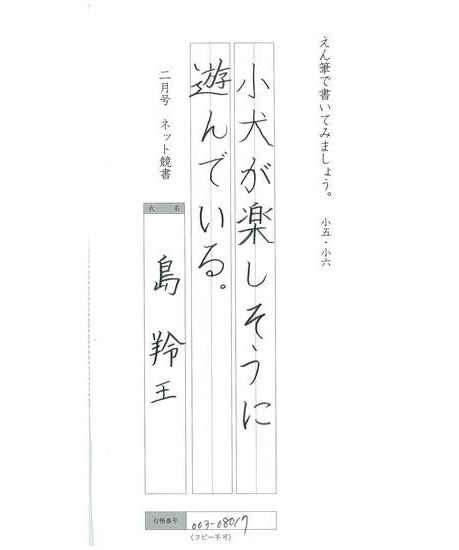 えん筆で書いてみましょう。 小五・小六
小犬が楽しそうに
遊んでいる。
二月号 ネット競書
氏名
島 羚王
合格番号 003-08017
(コピー不可)